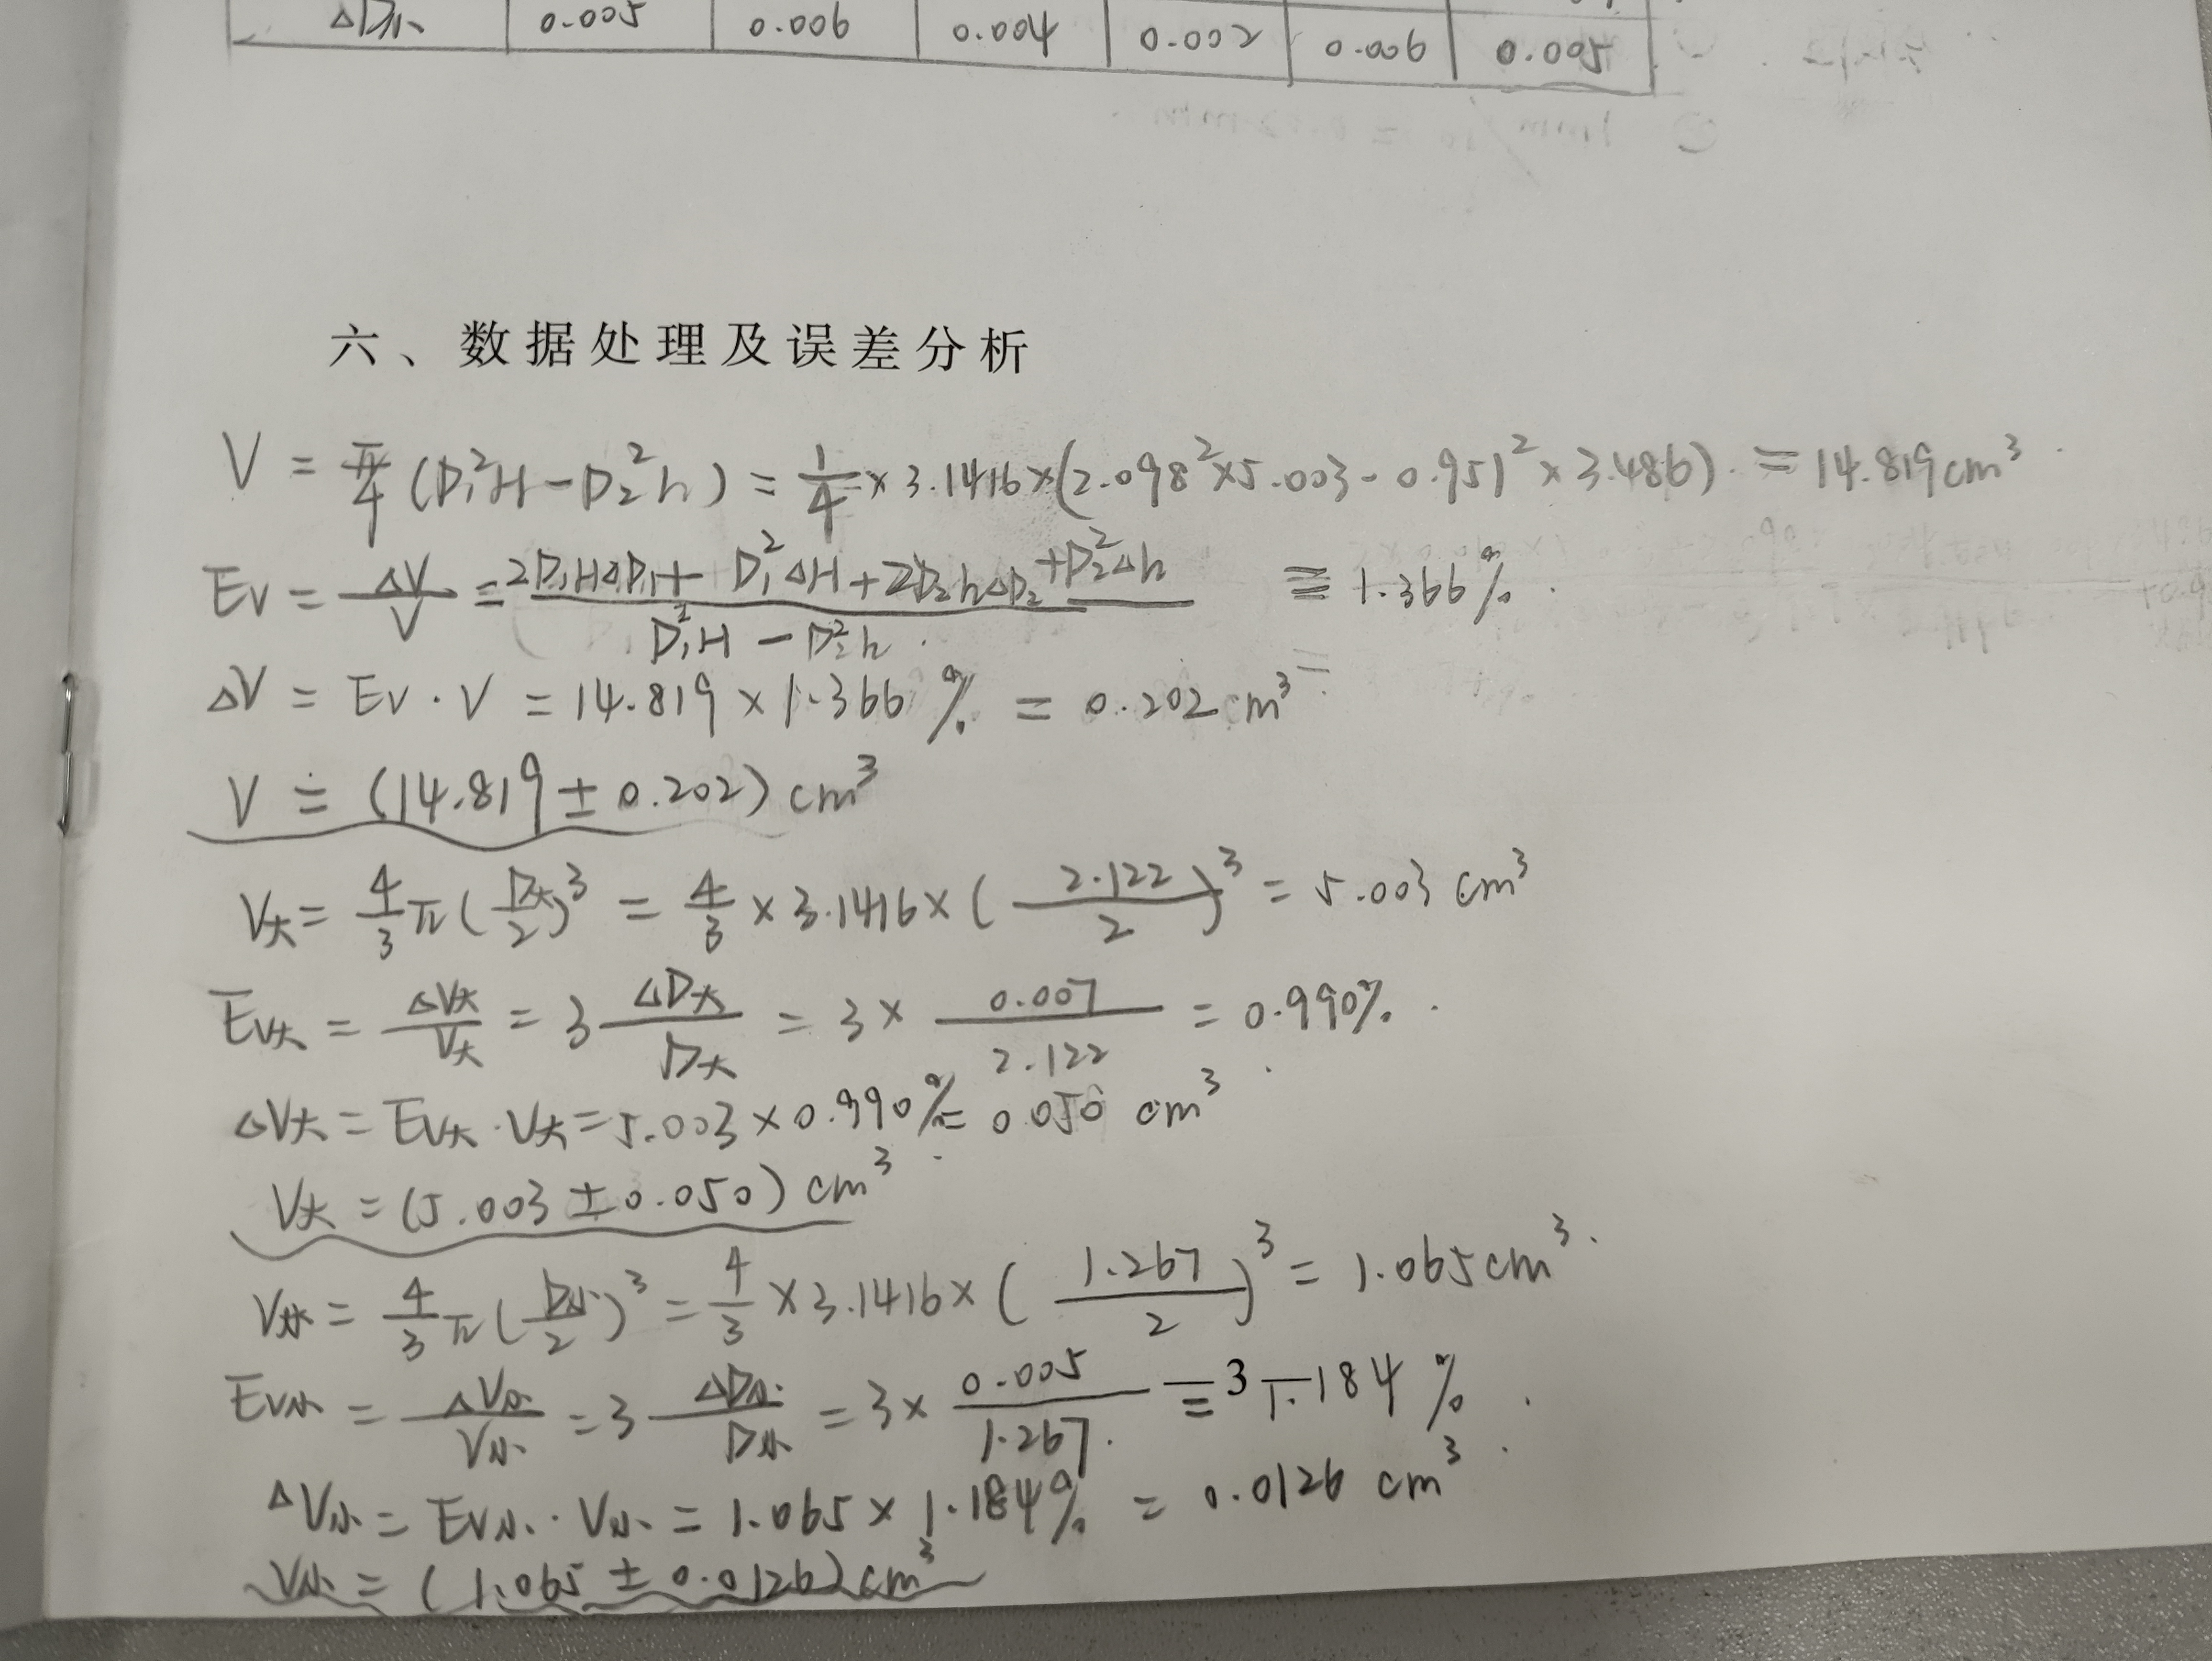 ΔD小 0.005 0.006 0.004 0.002 0.006 0.005
六、数据处理及误差分析
V = π/4 (D₁²H - D₂²h) = 1/4 × 3.1416 × (2.098² × 5.003 - 0.951² × 3.486) = 14.819cm³
Ev = ΔV/V = (2D₁HΔD₁ + D₁²ΔH + 2D₂hΔD₂ + D₂²Δh)/(D₁²H - D₂²h) = 1.366%
ΔV = Ev · V = 14.819 × 1.366% = 0.202 cm³
V = (14.819 ± 0.202) cm³
V大 = 4/3 π (D大/2)³ = 4/3 × 3.1416 × (2.122/2)³ = 5.003 cm³
Ev大 = ΔV大/V大 = 3 ΔD大/D大 = 3 × 0.007/2.122 = 0.990%
ΔV大 = Ev大 · V大 = 5.003 × 0.990% = 0.050 cm³
V大 = (5.003 ± 0.050) cm³
V小 = 4/3 π (D小/2)³ = 4/3 × 3.1416 × (1.267/2)³ = 1.065cm³
Ev小 = ΔV小/V小 = 3 ΔD小/D小 = 3 × 0.005/1.267 = 3 1.184%
ΔV小 = Ev小 · V小 = 1.065 × 1.184% = 0.0126 cm³
V小 = (1.065 ± 0.0126) cm³